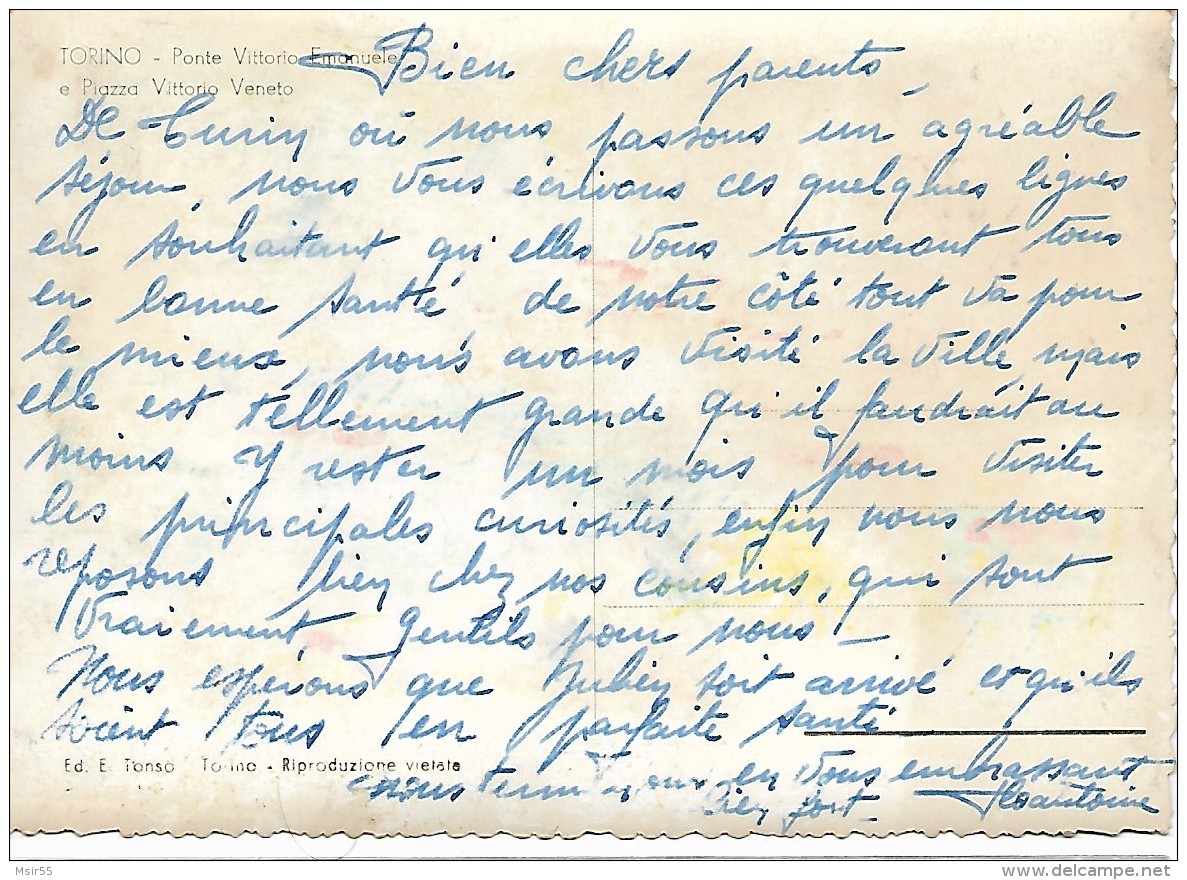 TORINO - Ponte Vittorio Emanuele
e Piazza Vittorio Veneto
Bien chers parents,
De Turin où nous passons un agréable
séjour, nous vous écrivons ces quelques lignes
en souhaitant qu'elles vous trouveront tous
en bonne santé, de notre côté tout va pour
le mieux, nous avons visité la ville, mais
elle est tellement grande qu'il faudrait au
moins y rester un mois pour visiter
les principales curiosités, enfin nous nous
reposons bien chez nos cousins, qui sont
vraiement gentils pour nous -
Nous espérons que soit arrivé et qu'ils
soient tous en parfaite santé
Ed. E. Tonso Torino - Riproduzione vietata
nous terminons en vous embrassant
bien fort -
Msir55
delcampe.net